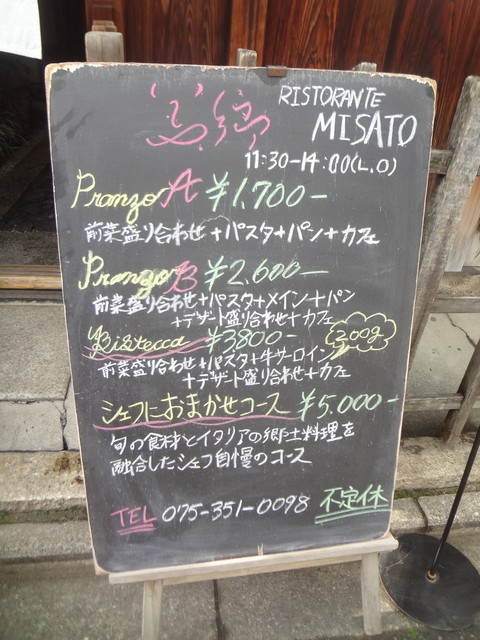 RISTORANTE
MISATO
11:30-14:00(L.O)
Pranzo A ¥1.700-
前菜盛り合わせ+パスタ+パン+カフェ
Pranzo B ¥2.600-
前菜盛り合わせ+パスタ+メイン+パン
+デザート盛り合わせ+カフェ
Bistecca ¥3800- 200g
前菜盛り合わせ+パスタ+牛サーロイン
+デザート盛り合わせ+カフェ
シェフにおまかせコース ¥5.000-
旬の食材とイタリアの郷土料理を
融合したシェフ自慢のコース
TEL 075-351-0098 不定休